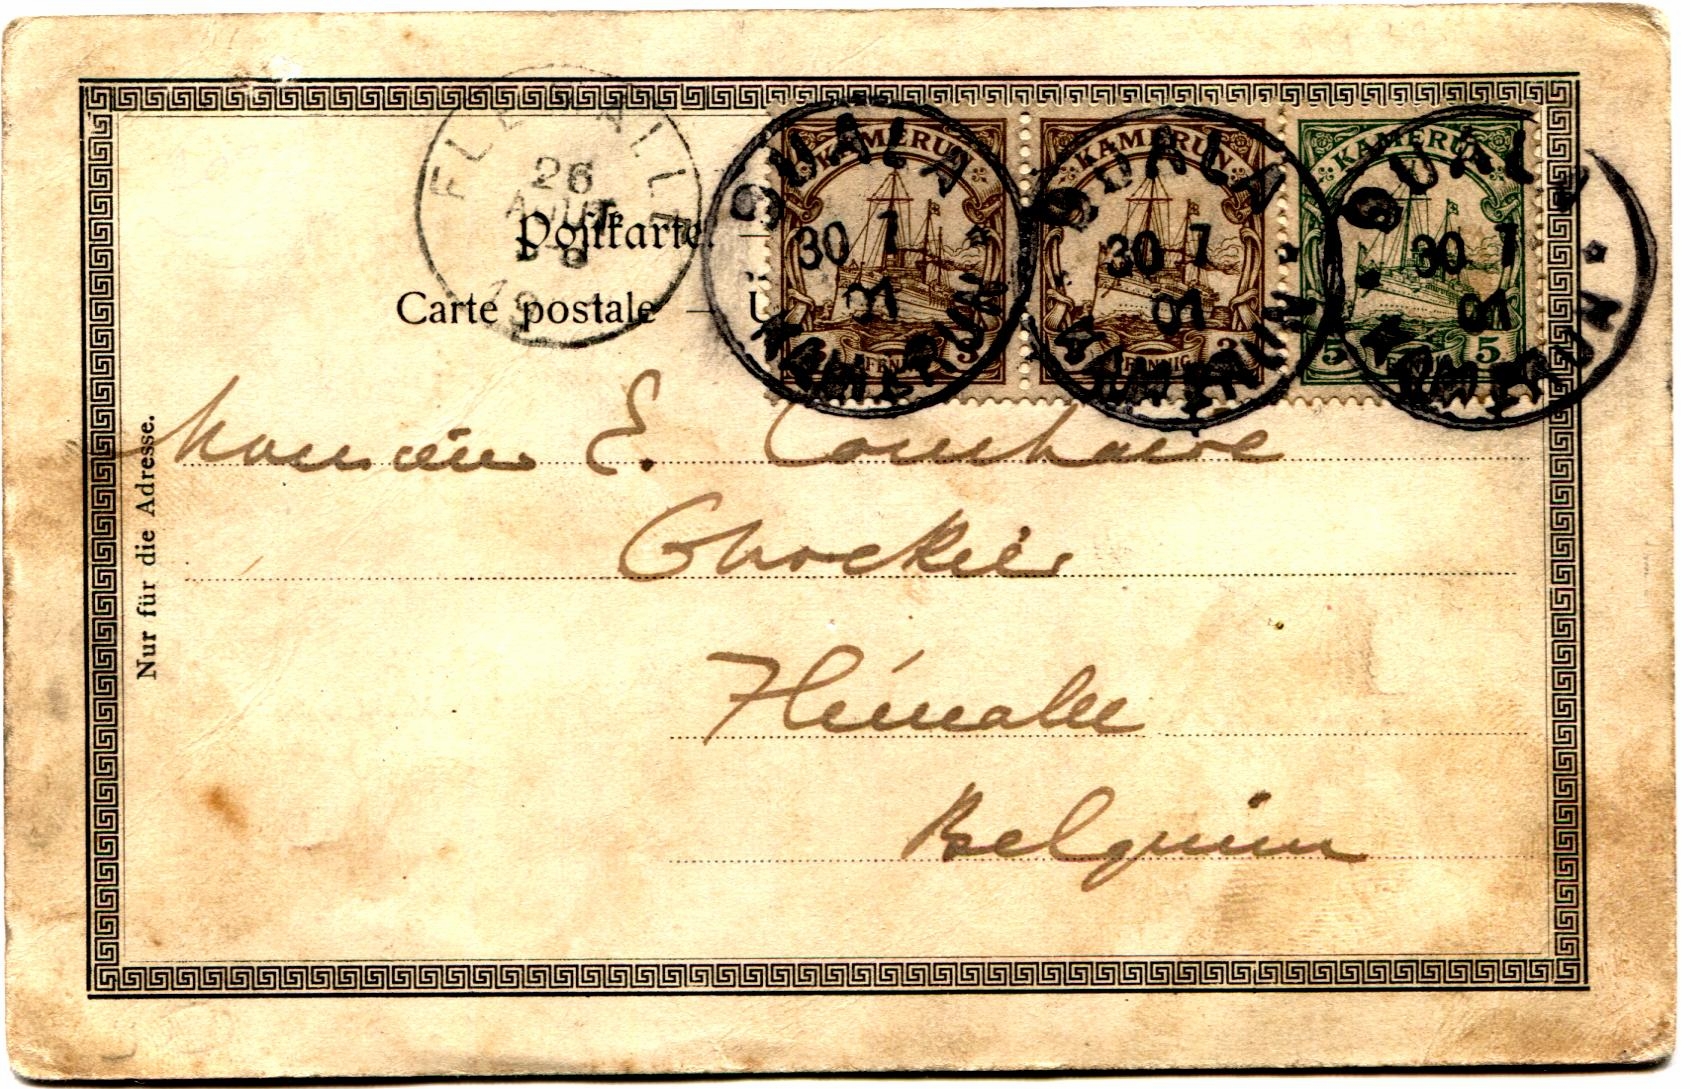 FLÉMALLE
26
AOUT
1901
Postkarte.
Carte postale — U
DUALA
30 7
01
KAMERUN
DUALA
30 7
01
KAMERUN
DUALA
30 7
01
KAMERUN
KAMERUN
3 PFENNIG 3
KAMERUN
3 PFENNIG 3
KAMERUN
5 PFENNIG 5
Nur für die Adresse.
Monsieur E. Comhaire
Chockier
Flémalle
Belgium